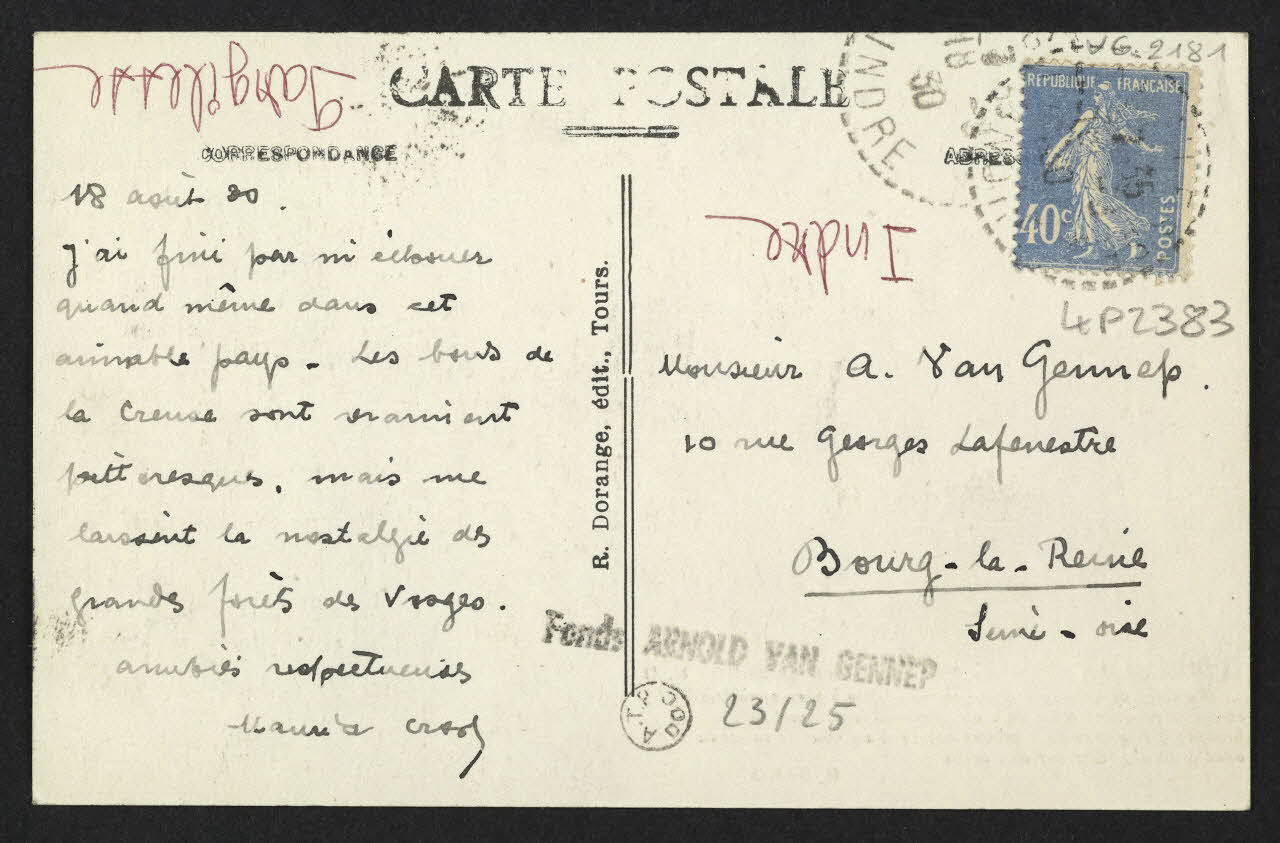 VG. 2181
Gargilesse
CARTE POSTALE
CORRESPONDANCE
18 août 30.
j'ai fini par m'échouer
quand même dans cet
aimable pays. Les bords de
la Creuse sont vraiment
pittoresques, mais me
laissent la nostalgie des
grandes forêts des Vosges.
amitiés respectueuses
Maurice
R. Dorange, édit., Tours.
INDRE
30
RÉPUBLIQUE FRANÇAISE
40c
POSTES
Indre
4P2383
Monsieur A. Van Gennep.
10 rue Georges Lafenestre
Bourg-la-Reine
Seine-oise
Fonds ARNOLD VAN GENNEP
A.T.P. DOC
23/25